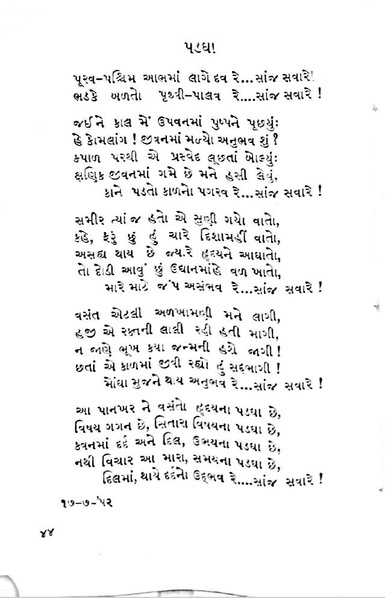 પડઘા
પૂરવ-પશ્ચિમ આભમાં લાગે દવ રે...સાંજ સવારે!
ભડકે બળતો પૃથ્વી-પાલવ રે....સાંજ સવારે !
જઈને કાલ મેં ઉપવનમાં પુષ્પને પૂછયું:
હે કોમલાંગ ! જીવનમાં મળ્યો અનુભવ શું ?
કપાળ પરથી એ પ્રસ્વેદ લૂછતાં બોલ્યું:
ક્ષણિક જીવનમાં ગમે છે મને હસી લેવું,
કાને પડતો કાળનો પગરવ રે...સાંજ સવારે !
સમીર ત્યાં જ હતો એ સુણી ગયો વાતો,
કહે, ફરું છું હું ચારે દિશામહીં વાતો,
અસહ્ય થાય છે જ્યારે હૃદયને આઘાતો,
તો દોડી આવું છું ઉદ્યાનમાંહે વળ ખાતો,
મારે માટે જંપ અસંભવ રે...સાંજ સવારે !
વસંત એટલી અળખામણી મને લાગી,
હજી એ રક્તની લાલી રહી હતી માગી,
ન જાણે ભૂખ કયા જન્મની હશે જાગી !
છતાં એ કાળમાં જીવી રહ્યો હું સદ્ભાગી !
મોંઘા મુજને થાય અનુભવ રે...સાંજ સવારે !
આ પાનખર ને વસંતો હૃદયના પડઘા છે,
વિષય ગગન છે, સિતારા વિષયના પડઘા છે,
કવનમાં દર્દ અને દિલ, ઉભયના પડઘા છે,
નથી વિચાર આ મારા, સમયના પડઘા છે,
દિલમાં, થાયે દર્દનો ઉદ્ભવ રે....સાંજ સવારે !
૧૭-૭-'૫૨
૪૪